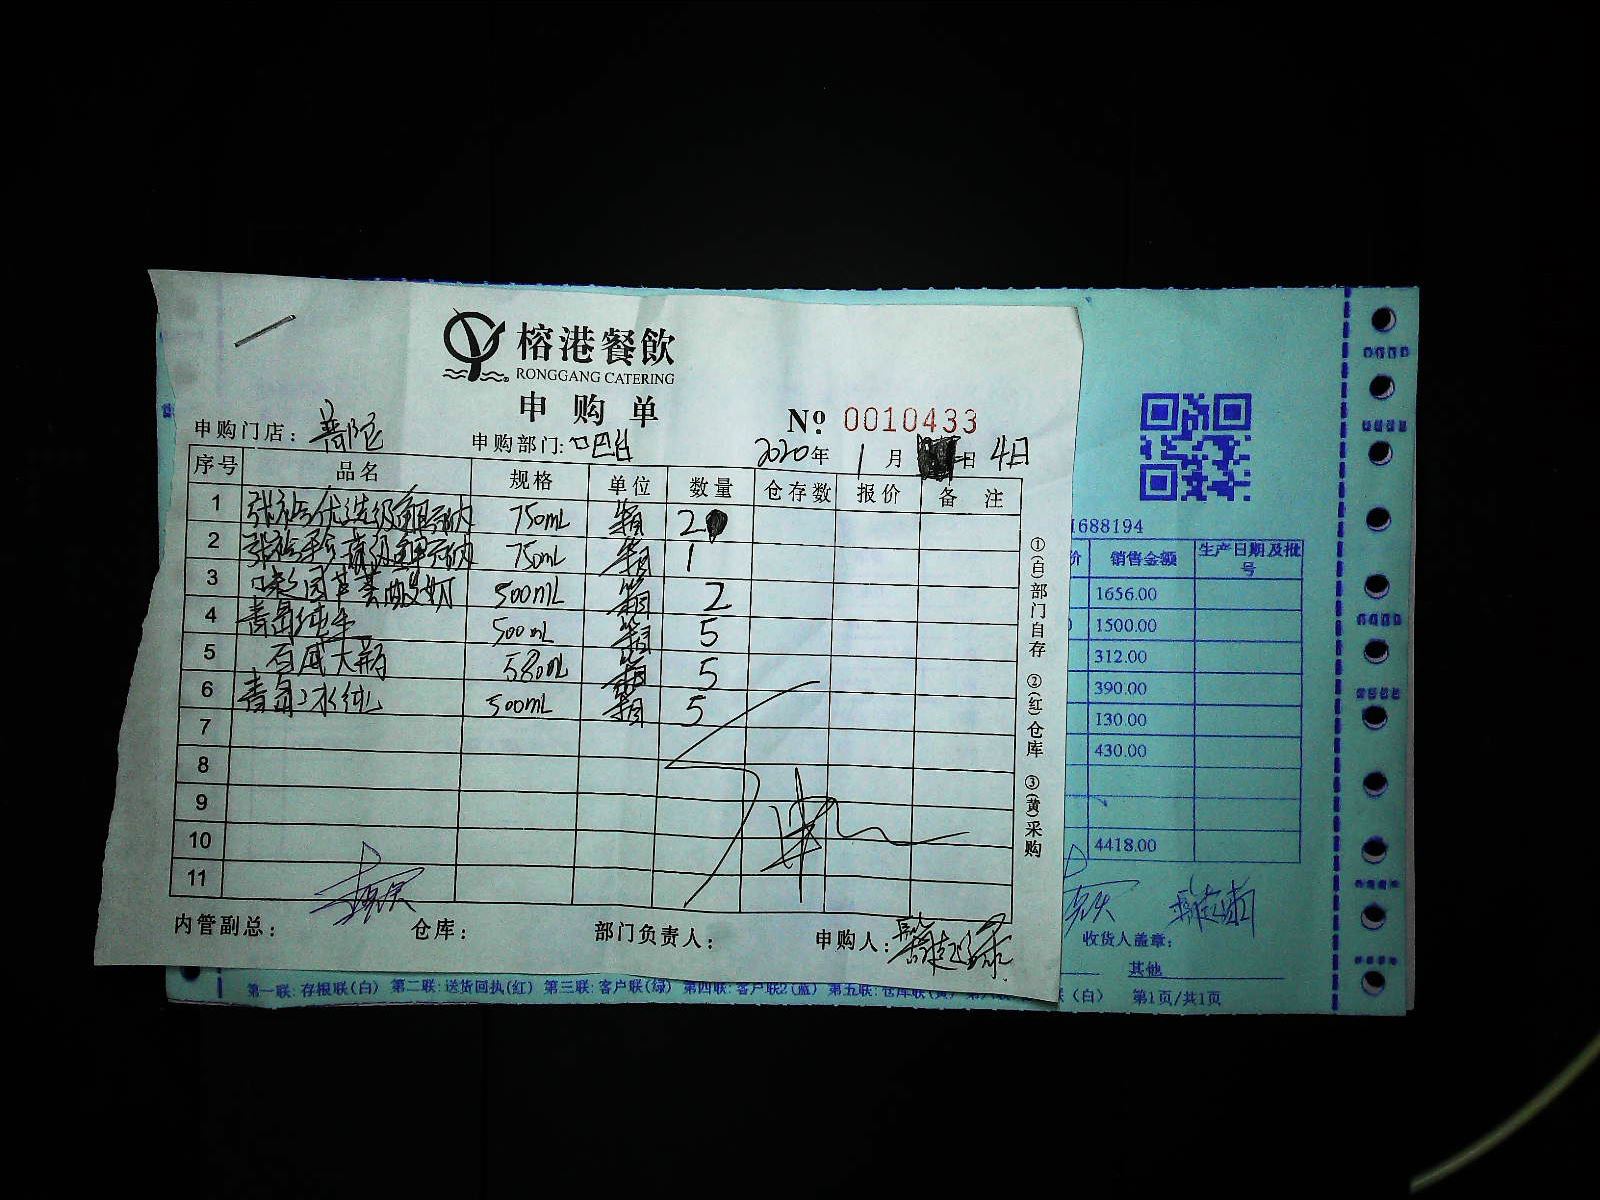 榕港餐飲
RONGGANG CATERING
申购单
№ 0010433
申购门店： 普陀
申购部门: 吧台
2020年 1月 4日
序号 品名 规格 单位 数量 仓存数 报价 备注
1 张裕优选级解百纳 750mL 箱 2
2 张裕珍藏级解百纳 750mL 箱 1
3 500mL 箱 2
4 青岛纯生 500mL 箱 5
5 百威大瓶 580mL 箱 5
6 青岛小冰纯 500mL 箱 5
7
8
9
10
11
内管副总： 仓库： 部门负责人： 申购人：
①(白)部门自存 ②(红)仓库 ③(黄)采购
1688194
价 销售金额 生产日期及批号
1656.00
1500.00
312.00
390.00
130.00
430.00
4418.00
收货人盖章:
其他
第一联: 存根联(白) 第二联: 送货回执(红) 第三联: 客户联(绿) 第四联: 客户联2(蓝) 第五联: 仓库联(黄) 联(白) 第1页/共1页